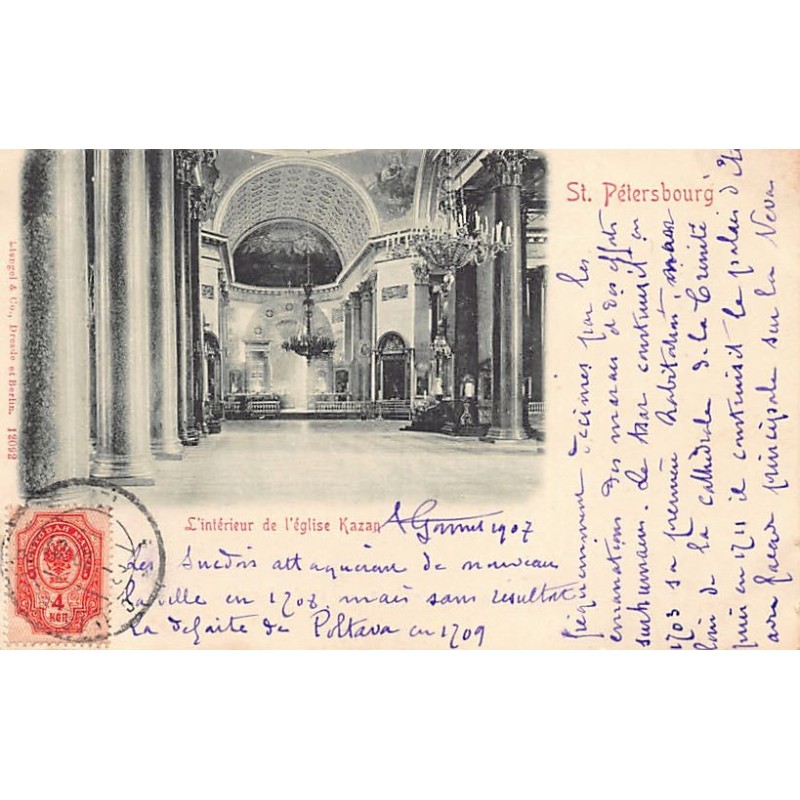 St. Pétersbourg
Stengel & Co., Dresde et Berlin. 12092
L'intérieur de l'église Kazan
1907
ПОЧТОВАЯ МАРКА
4
КОП
Les Suedois attaquèrent de nouveau
la ville en 1708, mais sans résultat
la défaite de Poltava en 1709
fréquemment décimés par les
emanations des marais et des efforts
surhumains. Le tzar construisit en
1703 sa première habitation, non
loin de la cathédrale de la Trinité
puis en 1711 il construisit le palais d'Eté
avec façade principale sur la Neva